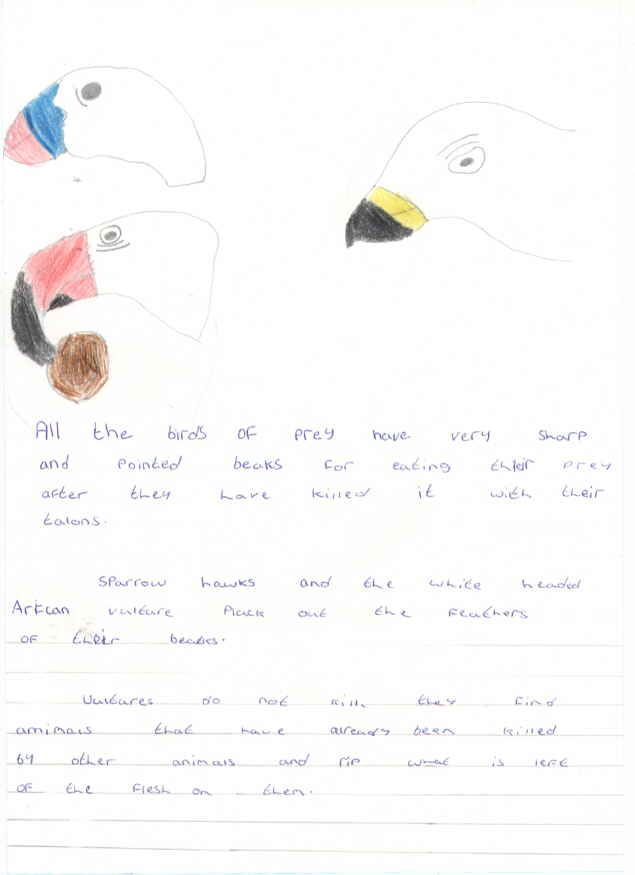 All the birds of prey have very sharp
and pointed beaks for eating their prey
after they have killed it with their
talons.
Sparrow hawks and the white headed
Artcan vulture Pluck out the feathers
of their beaks.
Vultures do not kill they find
amimais that have already been killed
by other animals and rip what is left
of the flesh on them.